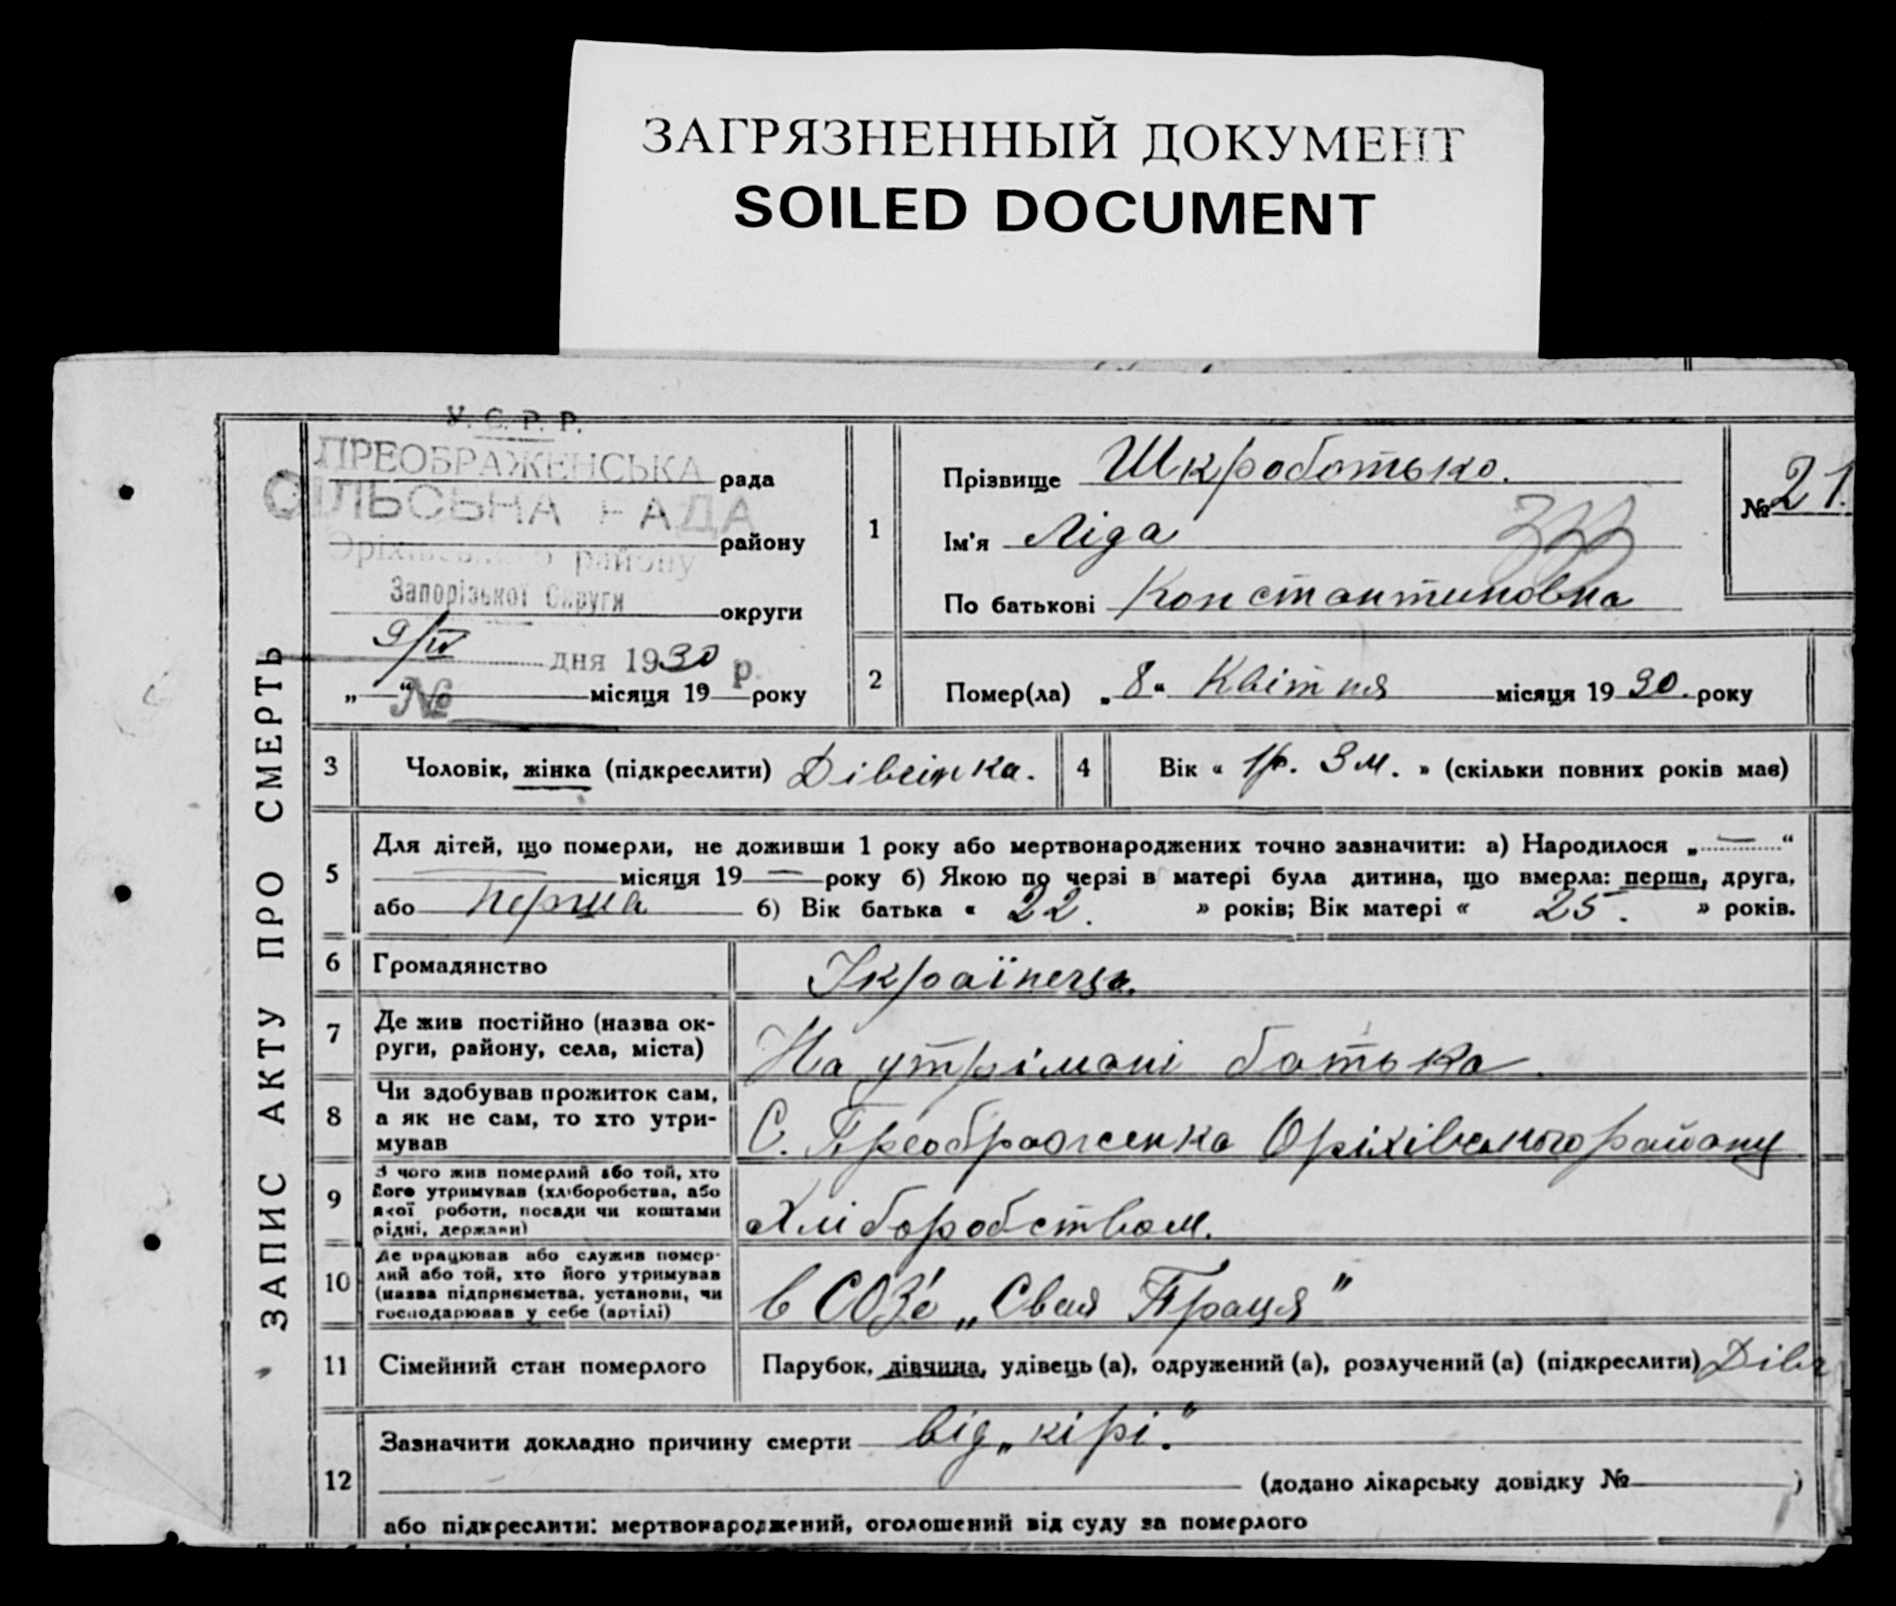 ЗАГРЯЗНЕННЫЙ ДОКУМЕНТ
SOILED DOCUMENT
ЗАПИС АКТУ ПРО СМЕРТЬ
У. С. Р. Р.
ПРЕОБРАЖЕНСЬКА рада
СІЛЬСЬКА РАДА
району
Оріхівського району
Запорізької Округи
округи
9/IV дня 1930 р.
„ “ місяця 19 року
№
1
Прізвище Шкработько.
Ім'я Ліда
По батькові Константиновна
№ 21.
2
Помер(ла) „ 8 “ Квітня місяця 19 30. року
3 Чоловік, жінка (підкреслити) Дівчінка.
4 Вік « 1р. 3 м. » (скільки повних років має)
5
Для дітей, що померли, не доживши 1 року або мертвонароджених точно зазначити: а) Народилося „ — “
— місяця 19 — року б) Якою по черзі в матері була дитина, що вмерла: перша, друга,
або перша б) Вік батька « 22. » років; Вік матері « 25. » років.
6 Громадянство Українець.
7 Де жив постійно (назва ок-
руги, району, села, міста) На утрімані батька.
8 Чи здобував прожиток сам,
а як не сам, то хто утри-
мував С. Преображенка Оріхівського району
9 З чого жив померлий або той, хто
його утримував (хліборобства, або
якої роботи, посади чи коштами
рідні, держави) Хліборобством.
10 Де працював або служив помер-
лий або той, хто його утримував
(назва підприємства, установи, чи
господарював у себе (артілі) в СОЗ'є „Своя Праця"
11 Сімейний стан померлого Парубок, дівчина, удівець (а), одружений (а), розлучений (а) (підкреслити) Дівч
12
Зазначити докладно причину смерти від „кірі."
(додано лікарську довідку № )
або підкреслити: мертвонароджений, оголошений від суду за померлого